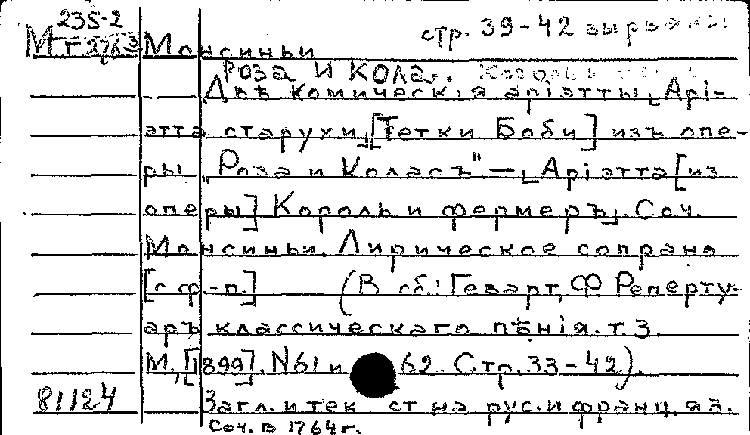 235-2
стр. 39-42 вырваны
Монсиньи
Роза и Кола.
Двѣ комическiя арiэтты ⌊Арi-
этта старухи⌋ [Тетки Боби] изъ опе-
ры „Роза и Коласъ" — ⌊Арiэтта [из
оперы] Король и фермеръ⌋. Соч.
Монсиньи. Лирическое сопрано
[с ф.-п.] (В сб.: Геварт, Ф Реперту-
аръ классическаго пѣнiя. т. 3.
М., [1899]. N61 и 62. Стр. 33-42).
81124 Загл. и текст на рус. и француз. яз.
Соч. в 1764 г.